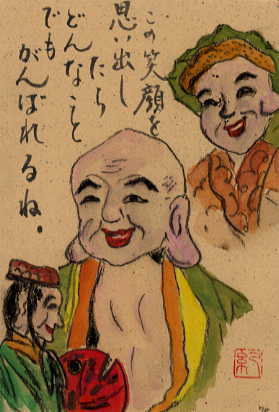 この笑顔を
思い出し
たら
どんなこと
でも
がんばれるね。